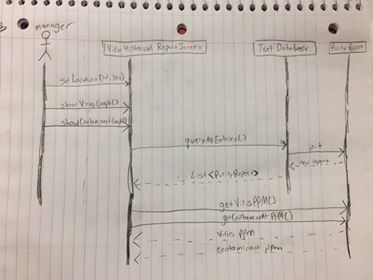 manager
View Historical Report Screen
Text Database
Purity Report
set Location (lat, lon)
show Virus Graph()
show Contaminant Graph()
query All Entries()
init
new query
List<Purity Report>
get Virus PPM()
get Contaminant PPM()
virus ppm
contaminant ppm